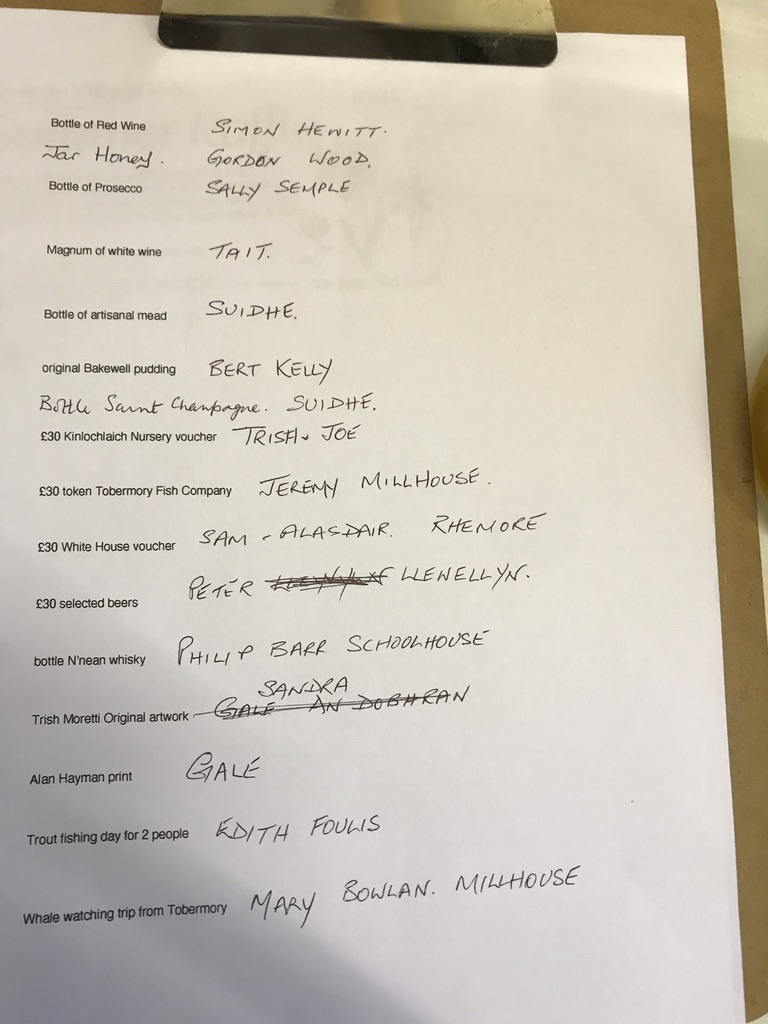 Bottle of Red Wine SIMON HEWITT.
Jar Honey. GORDON WOOD.
Bottle of Prosecco SALLY SEMPLE
Magnum of white wine TAIT.
Bottle of artisanal mead SUIDHE.
original Bakewell pudding BERT KELLY
Bottle Saint Champagne. SUIDHE.
£30 Kinlochlaich Nursery voucher TRISH + JOE
£30 token Tobermory Fish Company JEREMY MILLHOUSE.
£30 White House voucher SAM - ALASDAIR. RHEMORE
£30 selected beers PETER LLEWELLYN.
bottle N'nean whisky PHILIP BARR SCHOOLHOUSE
SANDRA
Trish Moretti Original artwork GALE AN DOBHRAN
Alan Hayman print GALE
Trout fishing day for 2 people EDITH FOULIS
Whale watching trip from Tobermory MARY BOWLAN. MILLHOUSE